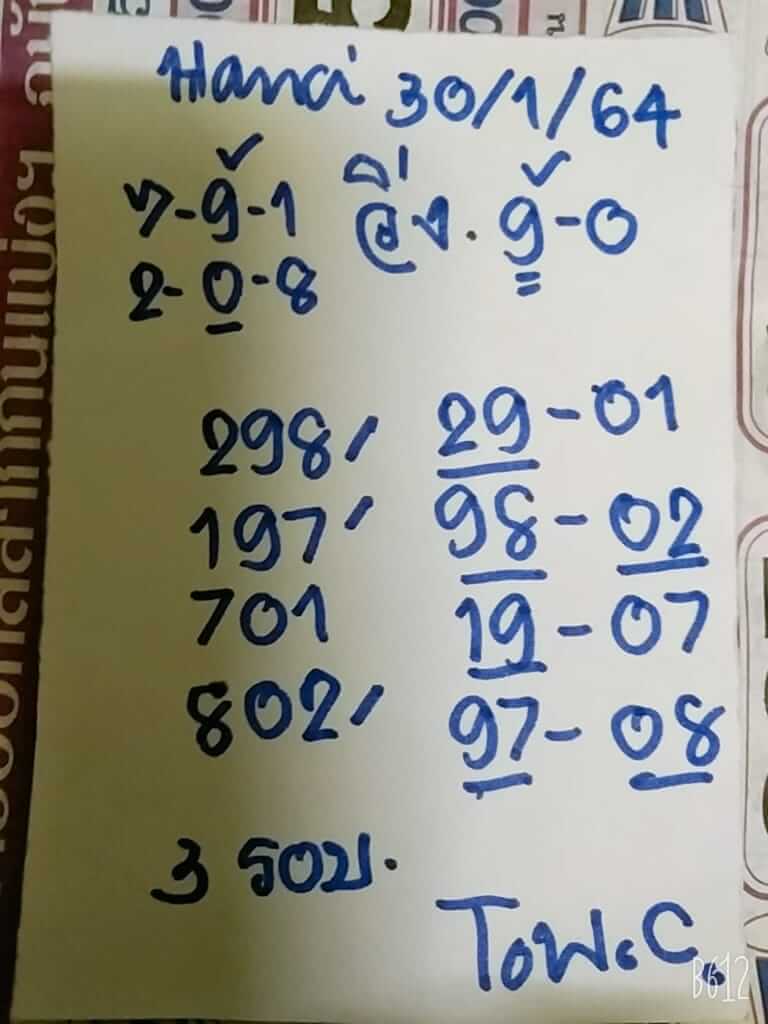 Hanoi 30/1/64
7-9-1 วิ่ง. 9-0
2-0-8
298/ 29-01
197/ 98-02
701 19-07
802/ 97-08
3 รอบ.
B612